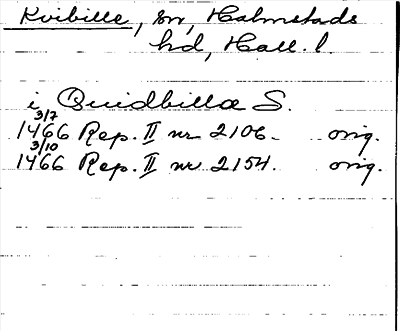 Kvibille, sn, Halmstads
hd, Hall. l.
i Quidbilla S.
3/7
1466 Rep. II nr 2106. orig.
3/10
1466 Rep. II nr 2154. orig.